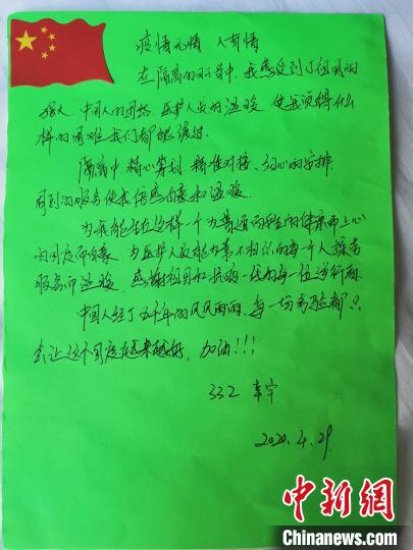 疫情无情 人有情
在隔离的日子中,我感受到了祖国的
强大,中国人的团结,医护人员的温暖,使我觉得什么
样的困难我们都能渡过。
隔离中精心筹划,精准对接,细心的安排
周到的服务使我倍感自豪和温暖。
为我能生在这样一个为普通百姓的健康而上心
的国度而自豪,为医护人员能为素不相识的每一个人提供
服务而温暖,感谢祖国和抗疫一线的每一位逆行者。
中国人经了五千年的风风雨雨,每一场考验都只
会让这个国度越来越好,加油!!!
332 章宇
2020.4.29.
中新网
Chinanews.com